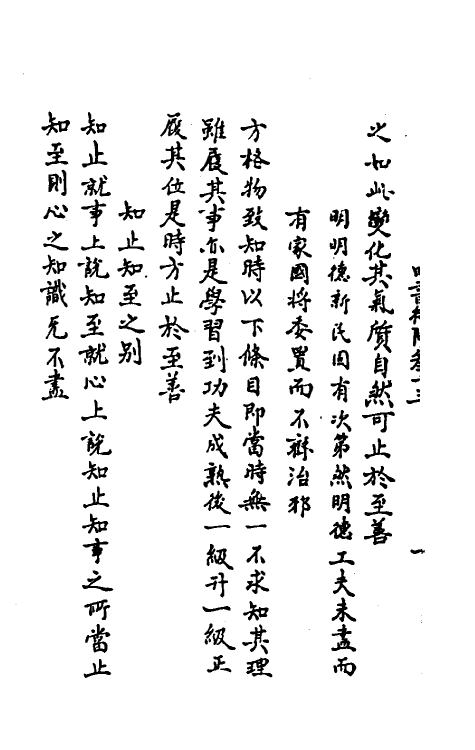 之如此變化其氣質自然可止於至善
明明德新民固有次第然明德工夫未盡而
有家國將委置而不務治邪
方格物致知時以下條目即當時無一不求知其理
雖履其事亦是學習到功夫成熟後一級升一級正
履其位是時方止於至善
知止知至之别
知止就事上說知至就心上說知止知事之所當止
知至則心之知識无不盡